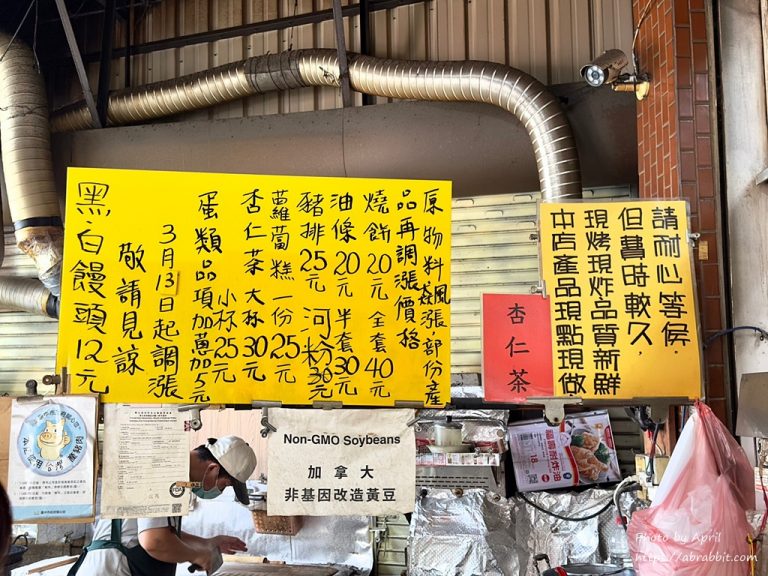 原物料飆漲部份產
品再調漲價格
燒餅20元 全套40元
油條20元 半套30元
豬排25元 河粉30元
蘿蔔糕一份25元
杏仁茶大杯30元
小杯25元
蛋類品項加蔥加5元
3月13日起調漲
敬請見諒
黑.白饅頭12元
請耐心等侯.
但費時較久,
現烤現炸品質新鮮
本店產品現點現做
杏仁茶
Non-GMO Soybeans
加拿大
非基因改造黃豆
Photo by April
https://abrabbit.com